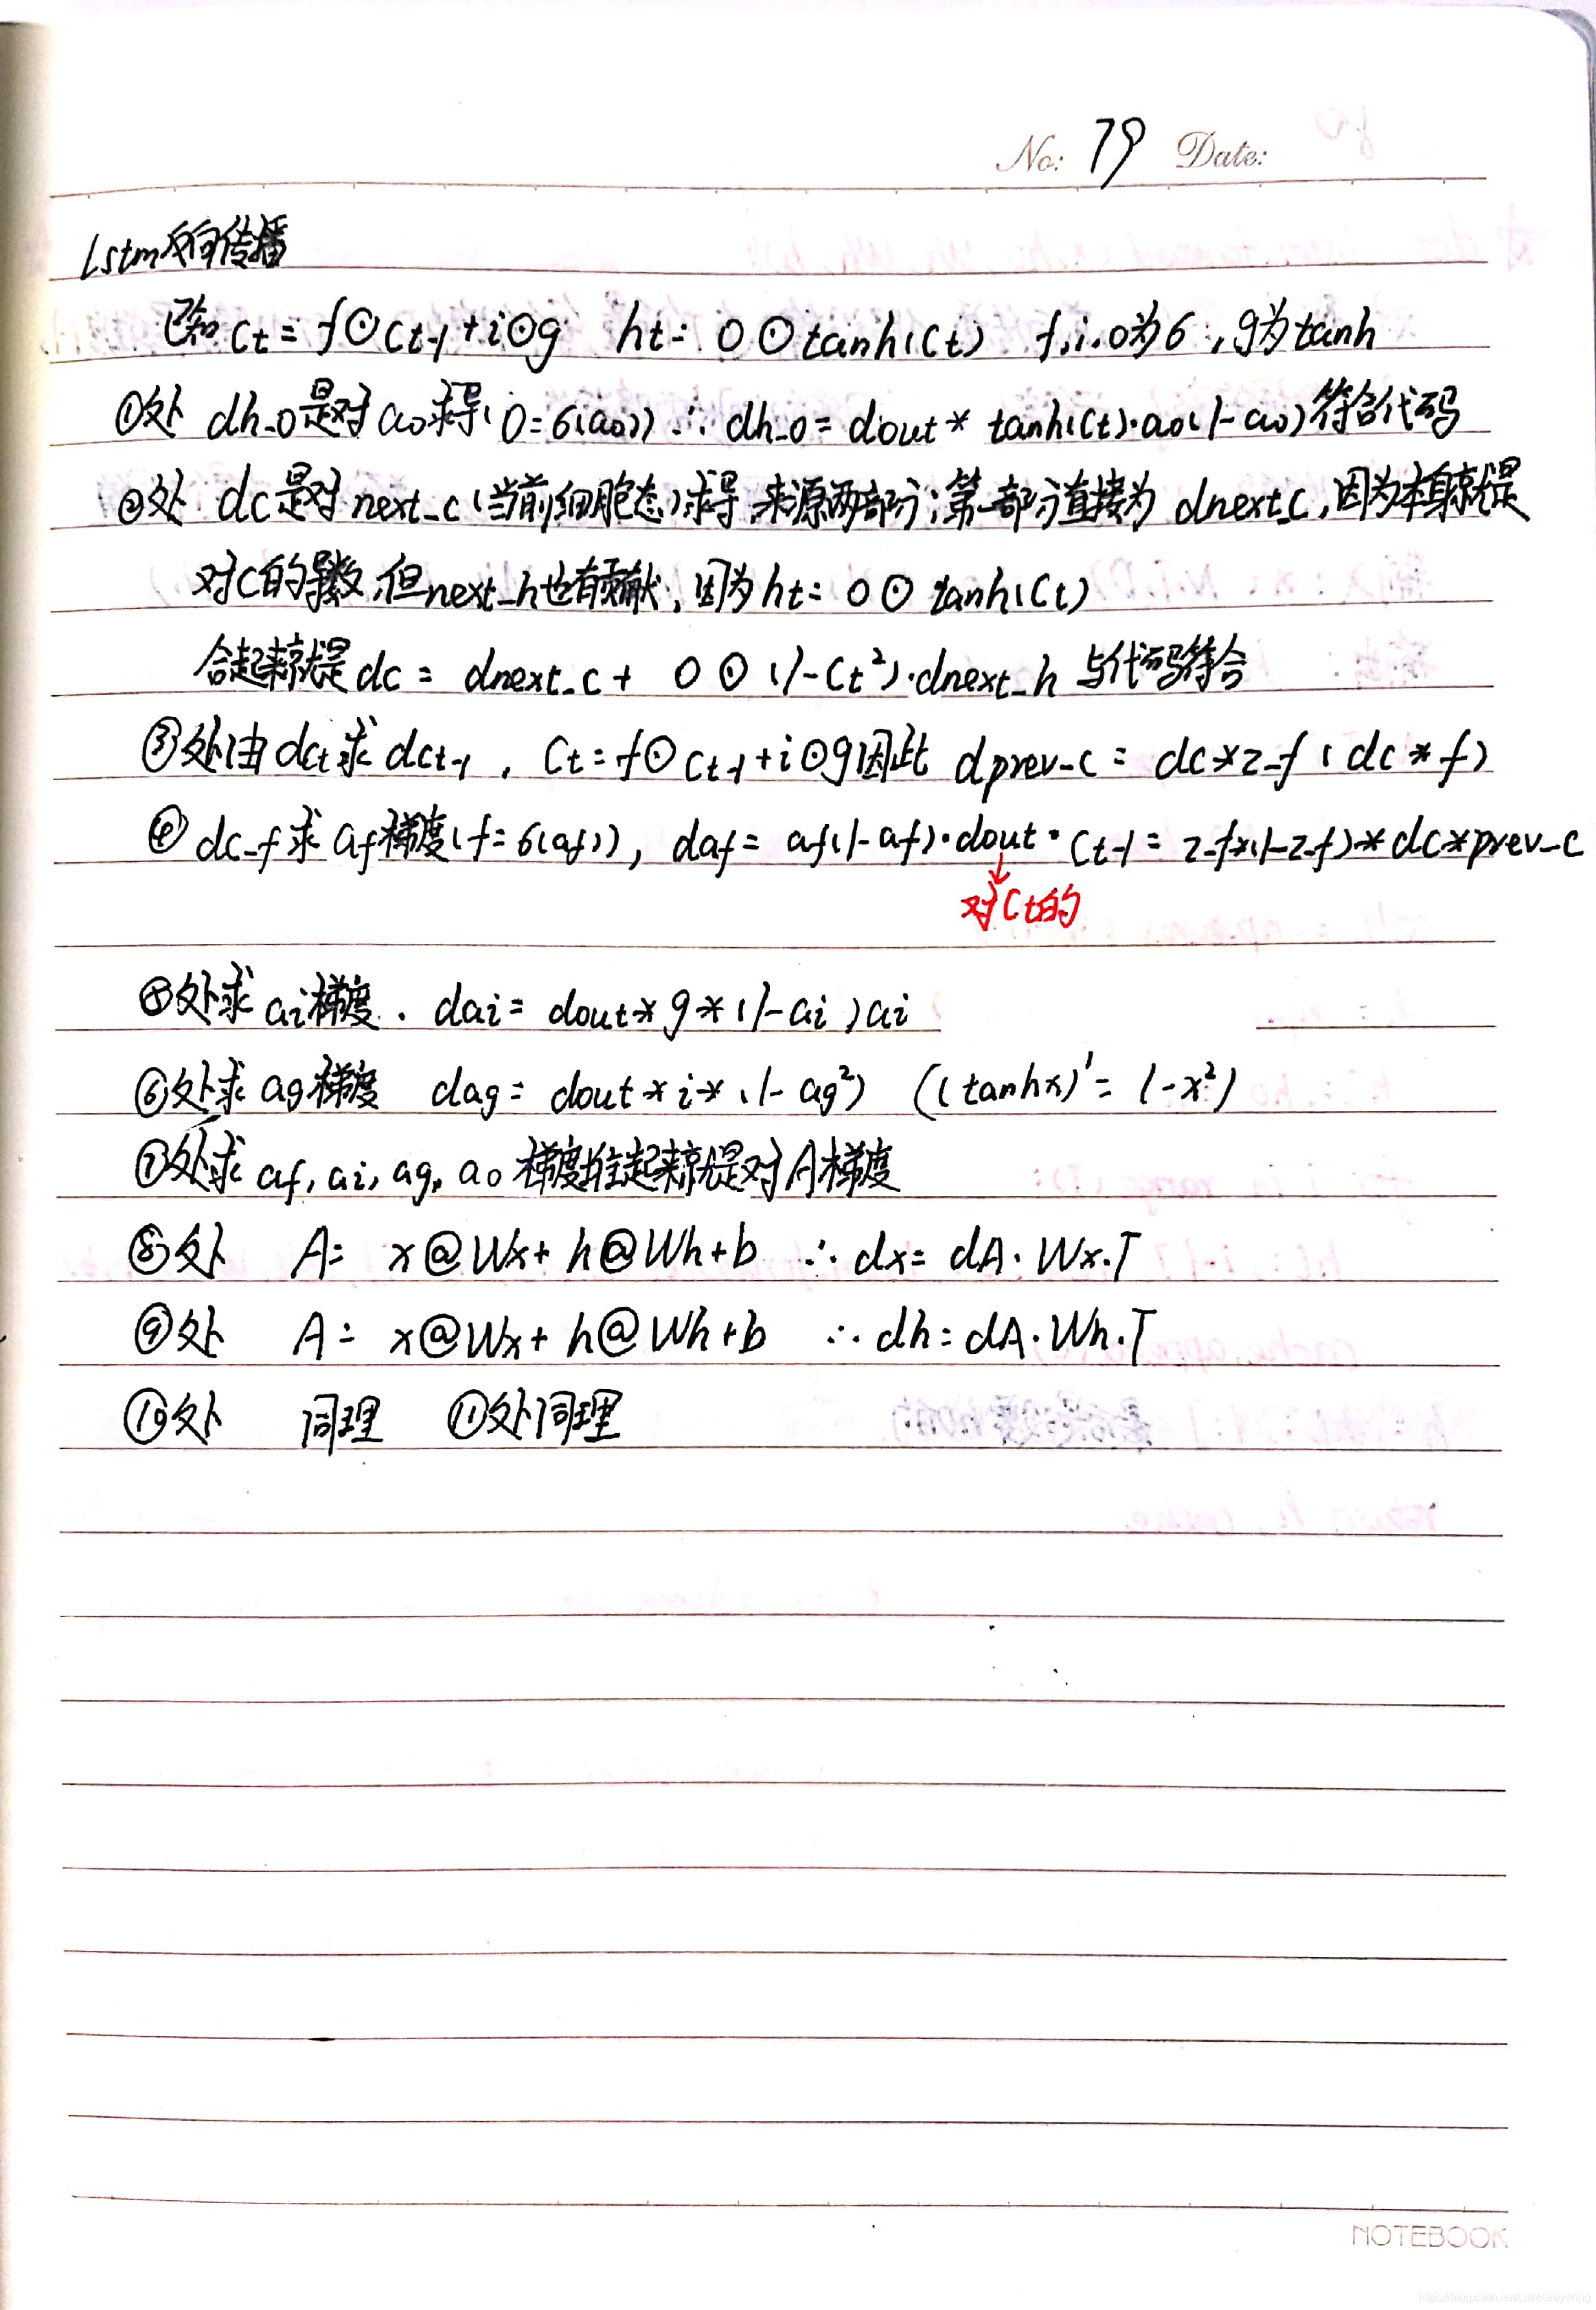 No: 79 Date:
lstm反向传播
已知 Ct = f⊙Ct-1 + i⊙g ht = o⊙tanh(Ct) f,i,o为σ,g为tanh
①处 dh_o是对ao求导(o=σ(ao)) ∴ dh_o = dout * tanh(Ct)·ao(1-ao)符合代码
②处 dc是对next_c(当前细胞态)求导,来源两部分;第一部分直接为 dnext_c,因为本身就是
对C的导数,但next_h也有贡献,因为ht = o⊙tanh(Ct)
合起来就是dc = dnext_c + o⊙(1-Ct²)·dnext_h 与代码符合
③处由dct求dct-1, Ct=f⊙Ct-1+i⊙g因此 dprev-c = dc*z_f (dc*f)
④dc_f求af梯度(f=σ(af)), daf = af(1-af)·dout·Ct-1 = z_f*(1-z_f)*dc*prev-c
对Ct的
⑤处求ai梯度. dai = dout*g*(1-ai)ai
⑥处求ag梯度 dag = dout*i*(1-ag²) ((tanhx)'=1-x²)
⑦处求af,ai,ag,ao梯度堆起来就是对A梯度
⑧处 A= x@Wx+h@Wh+b ∴dx=dA·Wx.T
⑨处 A= x@Wx+h@Wh+b ∴dh=dA·Wh.T
⑩处 同理 ⑪处同理
NOTEBOOK
https://blog.csdn.net/LittleGreyWing